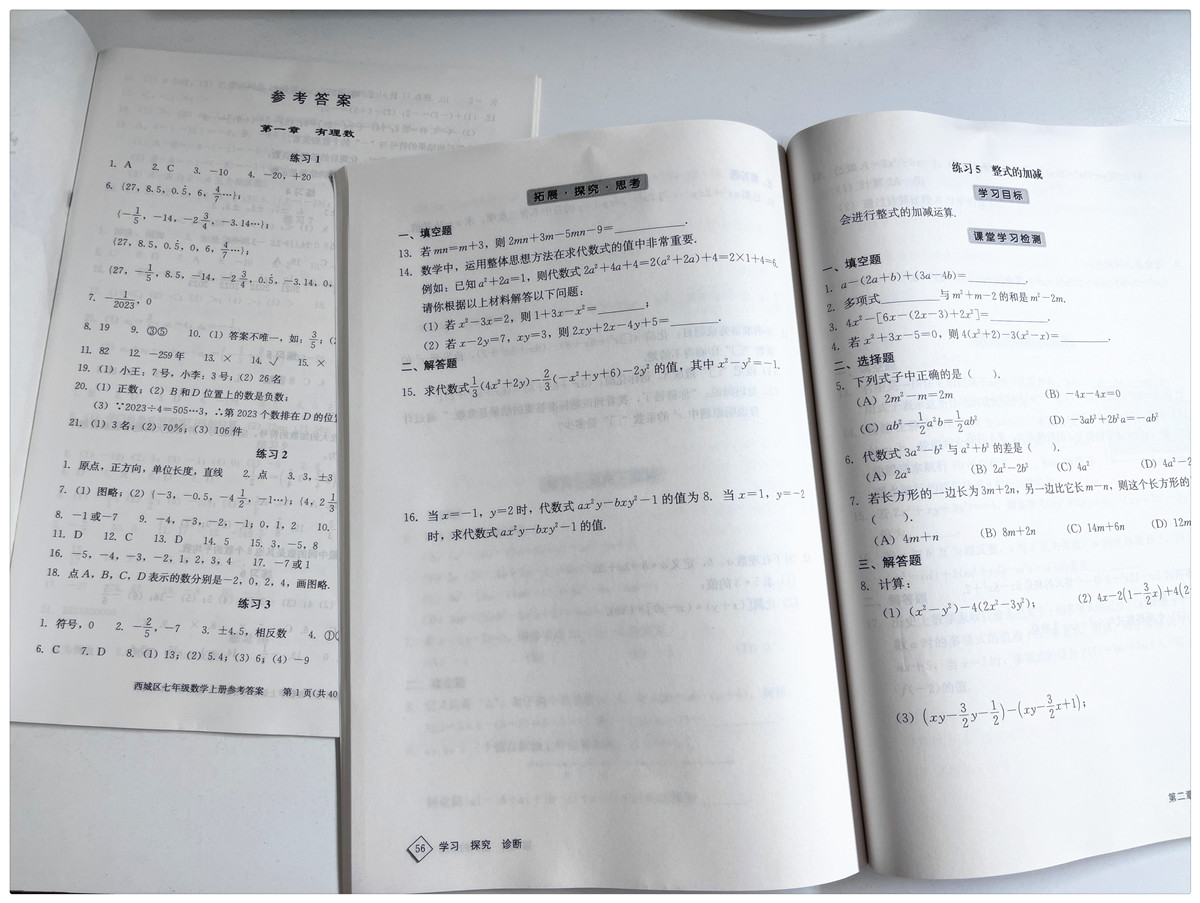 参考答案
第一章 有理数
练习1
1. A 2. C 3. -10 4. -20, +20
6. {27, 8.5, 0.5̇, 6, 4/7…};
{-1/5, -14, -2 3/4, -3.14…};
{27, 8.5, 0.5̇, 0, 6, 4/7…};
{27, -1/5, 8.5, -14, -2 3/4, 0.5̇, -3.14, 0,
7. -1/2023, 0
8. 19 9. ③⑤ 10. (1) 答案不唯一, 如: 3/5;
11. 82 12. -259年 13. × 14. √ 15. ×
19. (1) 小王: 7号, 小李: 3号; (2) 26名
20. (1) 正数; (2) B和D位置上的数是负数;
(3) ∵2023÷4=505…3, ∴第2023个数排在D的位
21. (1) 3名; (2) 70%; (3) 106件
练习2
1. 原点, 正方向, 单位长度, 直线 2. 点 3. 3, ±3
7. (1) 图略; (2) {-3, -0.5, -4 1/2, -1…}; {4, 2 1/3
8. -1或-7 9. -4, -3, -2, -1; 0, 1, 2 10.
11. D 12. C 13. D 14. 5 15. 3, -5, 8
16. -5, -4, -3, -2, 1, 2, 3, 4 17. -7或1
18. 点A, B, C, D表示的数分别是-2, 0, 2, 4, 画图略.
练习3
1. 符号, 0 2. -2/5, -7 3. ±4.5, 相反数 4. ①
6. C 7. D 8. (1) 13; (2) 5.4; (3) 6; (4) -9
西城区七年级数学上册参考答案 第1页(共40
拓展·探究·思考
一、填空题
13. 若mn=m+3, 则2mn+3m-5mn-9=________.
14. 数学中, 运用整体思想方法在求代数式的值中非常重要.
例如: 已知a²+2a=1, 则代数式2a²+4a+4=2(a²+2a)+4=2×1+4=6.
请你根据以上材料解答以下问题:
(1) 若x²-3x=2, 则1+3x-x²=________;
(2) 若x-2y=7, xy=3, 则2xy+2x-4y+5=________.
二、解答题
15. 求代数式1/3(4x²+2y)-2/3(-x²+y+6)-2y²的值, 其中x²-y²=-1.
16. 当x=-1, y=2时, 代数式ax²y-bxy²-1的值为8. 当x=1, y=-2
时, 求代数式ax²y-bxy²-1的值.
56 学习 探究 诊断
练习5 整式的加减
学习目标
会进行整式的加减运算.
课堂学习检测
一、填空题
1. a-(2a+b)+(3a-4b)=________.
2. 多项式________与m²+m-2的和是m²-2m.
3. 4x²-[6x-(2x-3)+2x²]=________.
4. 若x²+3x-5=0, 则4(x²+2)-3(x²-x)=________.
二、选择题
5. 下列式子中正确的是( ).
(A) 2m²-m=2m (B) -4x-4x=0
(C) ab²-1/2a²b=1/2ab² (D) -3ab²+2b²a=-ab²
6. 代数式3a²-b²与a²+b²的差是( ).
(A) 2a² (B) 2a²-2b² (C) 4a² (D) 4a²-2
7. 若长方形的一边长为3m+2n, 另一边比它长m-n, 则这个长方形的
( ).
(A) 4m+n (B) 8m+2n (C) 14m+6n (D) 12m
三、解答题
8. 计算:
(1) (x²-y²)-4(2x²-3y²); (2) 4x-2(1-3/2x)+4(2
(3) (xy-3/2y-1/2)-(xy-3/2x+1);
第二章